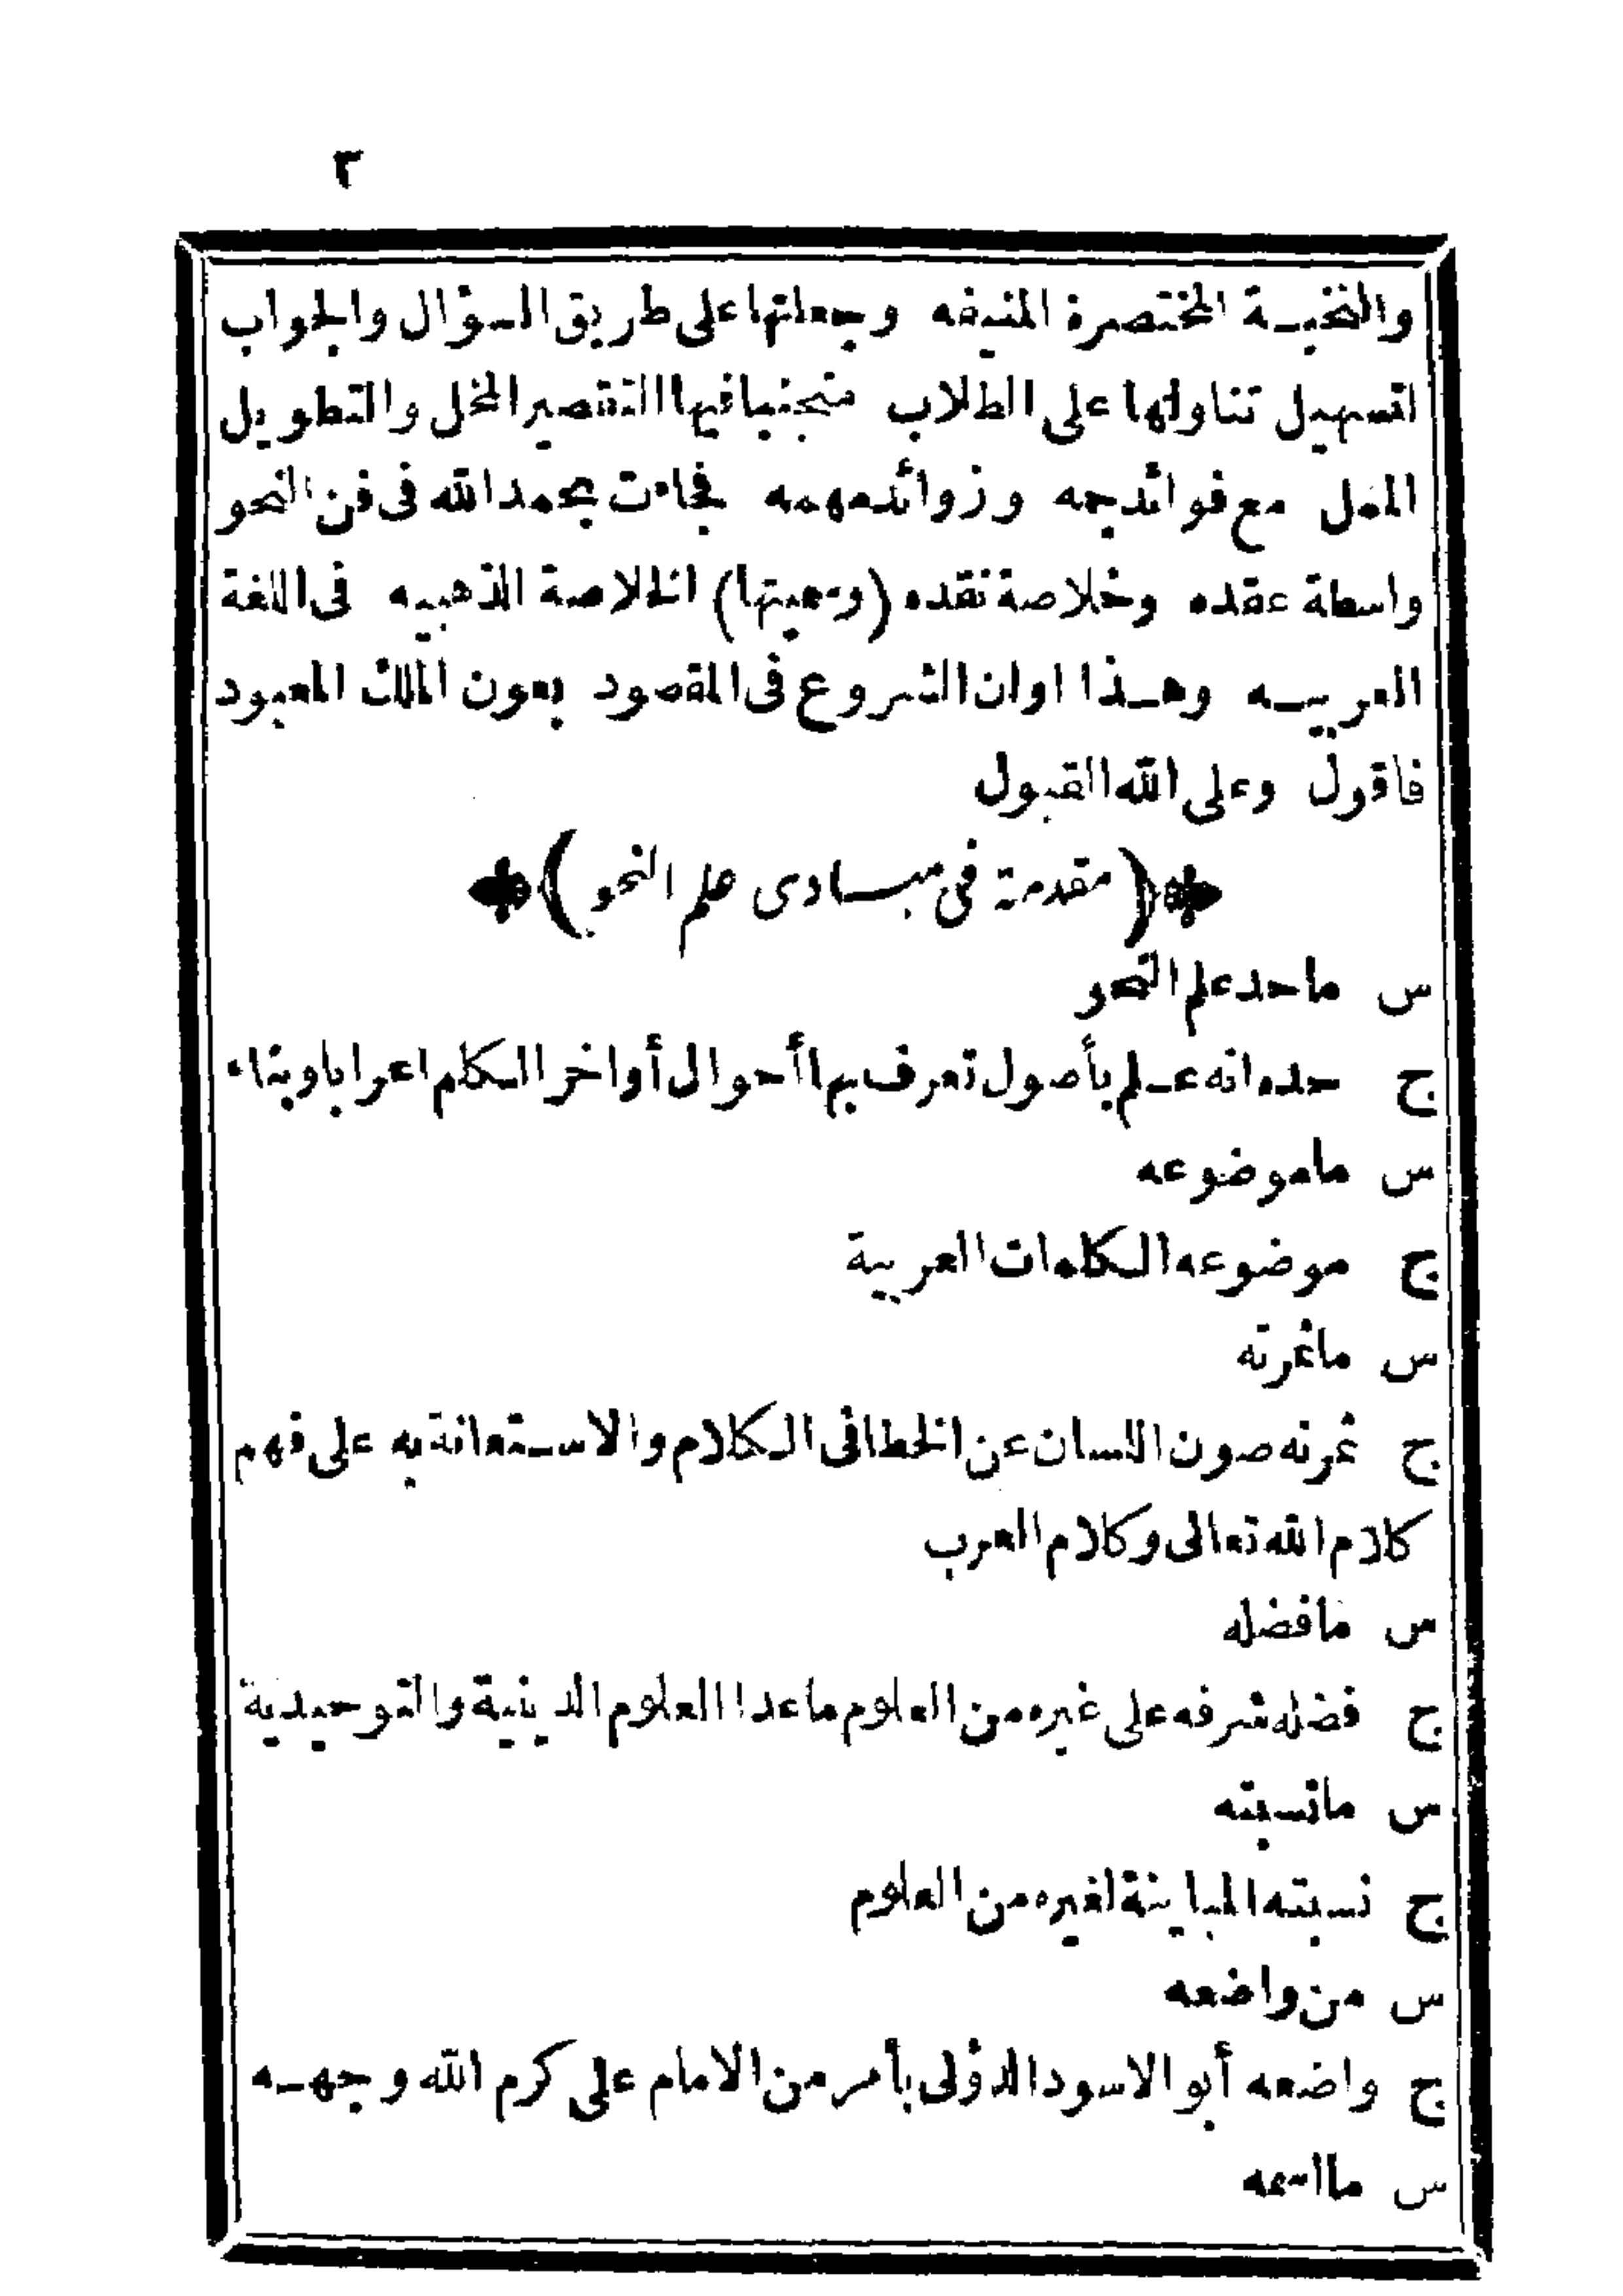 ٣
والنخبة المختصرة المنيفه وجعلتها على طريق السؤال والجواب
لتسهيل تناولها على الطلاب متجنبا فيها التقصير المخل والتطويل
الممل مع فوائد جمه وزوائد مهمه فجاءت بحمد الله فى فن النحو
واسطة عقده وخلاصة نقده (وسميتها) الخلاصة الذهبيه فى اللغة
العربيه وهذا اوان الشروع فى المقصود بعون الملك المعبود
فاقول وعلى الله القبول
(مقدمة فى مبادى علم النحو)
س ما حد علم النحو
ج حده انه علم بأصول تعرف بها أحوال أواخر الكلم اعرابا وبناء
س ما موضوعه
ج موضوعه الكلمات العربية
س ما ثمرته
ج ثمرته صون اللسان عن الخطا فى الكلام والاستعانة به على فهم
كلام الله تعالى وكلام العرب
س ما فضله
ج فضله شرفه على غيره من العلوم ما عدا العلوم الدينية والتوحيدية
س ما نسبته
ج نسبته المباينة لغيره من العلوم
س من واضعه
ج واضعه أبو الاسود الدؤلى بأمر من الامام على كرم الله وجهه
س ما اسمه